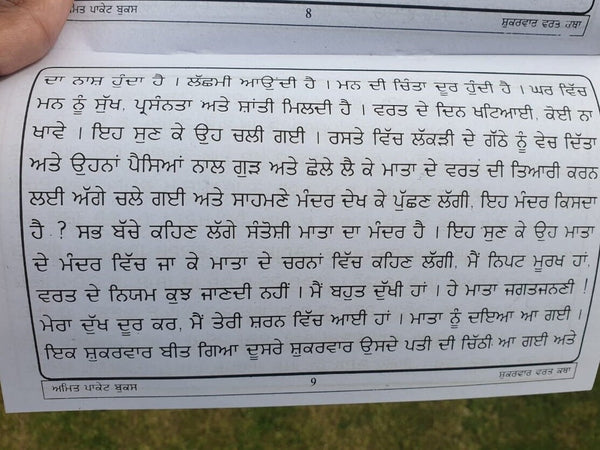 ਅਮਿਤ ਪਾਕੇਟ ਬੁਕਸ 8 ਸ਼ੁਕਰਵਾਰ ਵਰਤ ਕਥਾ
ਦਾ ਨਾਸ਼ ਹੁੰਦਾ ਹੈ । ਲੱਛਮੀ ਆਉਂਦੀ ਹੈ । ਮਨ ਦੀ ਚਿੰਤਾ ਦੂਰ ਹੁੰਦੀ ਹੈ । ਘਰ ਵਿੱਚ
ਮਨ ਨੂੰ ਸੁੱਖ, ਪ੍ਰਸੰਨਤਾ ਅਤੇ ਸ਼ਾਂਤੀ ਮਿਲਦੀ ਹੈ । ਵਰਤ ਦੇ ਦਿਨ ਖਟਿਆਈ, ਕੋਈ ਨਾ
ਖਾਵੇ । ਇਹ ਸੁਣ ਕੇ ਉਹ ਚਲੀ ਗਈ । ਰਸਤੇ ਵਿੱਚ ਲੱਕੜੀ ਦੇ ਗੱਠੇ ਨੂੰ ਵੇਚ ਦਿੱਤਾ
ਅਤੇ ਉਹਨਾਂ ਪੈਸਿਆਂ ਨਾਲ ਗੁੜ ਅਤੇ ਛੋਲੇ ਲੈ ਕੇ ਮਾਤਾ ਦੇ ਵਰਤ ਦੀ ਤਿਆਰੀ ਕਰਨ
ਲਈ ਅੱਗੇ ਚਲੇ ਗਈ ਅਤੇ ਸਾਹਮਣੇ ਮੰਦਰ ਦੇਖ ਕੇ ਪੁੱਛਣ ਲੱਗੀ, ਇਹ ਮੰਦਰ ਕਿਸਦਾ
ਹੈ .? ਸਭ ਬੱਚੇ ਕਹਿਣ ਲੱਗੇ ਸੰਤੋਸ਼ੀ ਮਾਤਾ ਦਾ ਮੰਦਰ ਹੈ । ਇਹ ਸੁਣ ਕੇ ਉਹ ਮਾਤਾ
ਦੇ ਮੰਦਰ ਵਿੱਚ ਜਾ ਕੇ ਮਾਤਾ ਦੇ ਚਰਨਾਂ ਵਿੱਚ ਕਹਿਣ ਲੱਗੀ, ਮੈਂ ਨਿਪਟ ਮੂਰਖ ਹਾਂ,
ਵਰਤ ਦੇ ਨਿਯਮ ਕੁਝ ਜਾਣਦੀ ਨਹੀਂ । ਮੈਂ ਬਹੁਤ ਦੁੱਖੀ ਹਾਂ । ਹੇ ਮਾਤਾ ਜਗਤਜਨਣੀ !
ਮੇਰਾ ਦੁੱਖ ਦੂਰ ਕਰ, ਮੈਂ ਤੇਰੀ ਸ਼ਰਨ ਵਿੱਚ ਆਈ ਹਾਂ । ਮਾਤਾ ਨੂੰ ਦਇਆ ਆ ਗਈ ।
ਇਕ ਸ਼ੁਕਰਵਾਰ ਬੀਤ ਗਿਆ ਦੂਸਰੇ ਸ਼ੁਕਰਵਾਰ ਉਸਦੇ ਪਤੀ ਦੀ ਚਿੱਠੀ ਆ ਗਈ ਅਤੇ
ਅਮਿਤ ਪਾਕੇਟ ਬੁਕਸ 9 ਸ਼ੁਕਰਵਾਰ ਵਰਤ ਕਥਾ